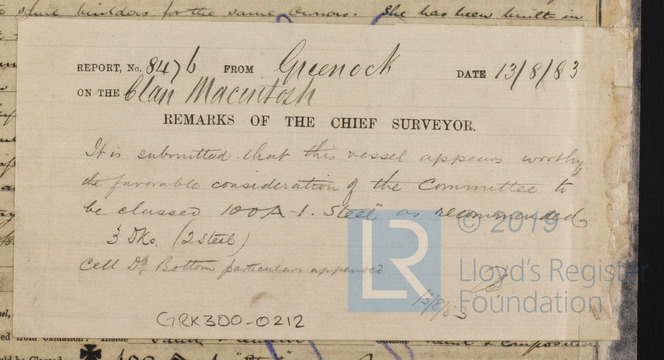 same builders for the same owners. She has been built in
REPORT, No. 8476 FROM Greenock DATE 13/8/83
ON THE Clan Macintosh
REMARKS OF THE CHIEF SURVEYOR.
It is submitted that this vessel appears worthy
the favorable consideration of the Committee to
be classed 100A-1. "Steel" as recommended
3 Dks. (2 Steel)
Cell Dl Bottom particulars appended
13/8/83
GRK300-0212
© 2019
LR
Lloyd's Register
Foundation